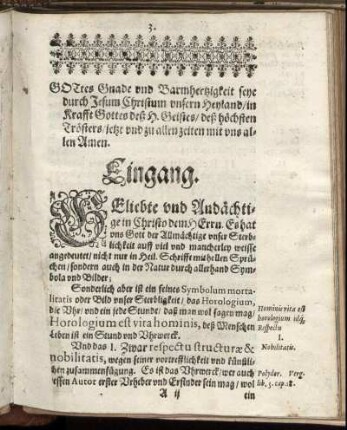 3.
GOttes Gnade vnd Barmhertzigkeit seye
durch Jesum Christum vnsern Heyland/in
Krafft Gottes deß H. Geistes/ deß höchsten
Trösters/jetzt vnd zu allen zeiten mit vns al-
len Amen.
Eingang.
GEliebte vnd Andächti-
ge in Christo dem HErrn. Es hat
vns Gott der Allmächtige vnser Sterb-
lichkeit auff viel vnd mancherley weisse
angedeutet/ nicht nur in Heil. Schrifft mit hellen Sprü-
chen/sondern auch in der Natur durch allerhand Sym-
bola vnd Bilder;
Sonderlich aber ist ein seines Symbolum morta-
litatis oder Bild vnser Sterbligkeit/ das Horologium,
die Vhr/ vnd ein jede Stunde/ daß man wol sagen mag/
Horologium est vita hominis, deß Menschen
Leben ist ein Stund vnd Vhrwerck.
Hominis vita est
horologium
Respectu
1.
Nobilitatis.
Vnd das 1. Zwar respectu structuræ &
nobilitatis, wegen seiner vortrefflichkeit vnd künstli-
chen zusammenfügung. Es ist das Vhrwerck/wer auch
dessen Autor erster Vrheber vnd Erfinder sein mag/ wol
Polydor. Verg.
lib. 3. cap. 18.
A ij
ein